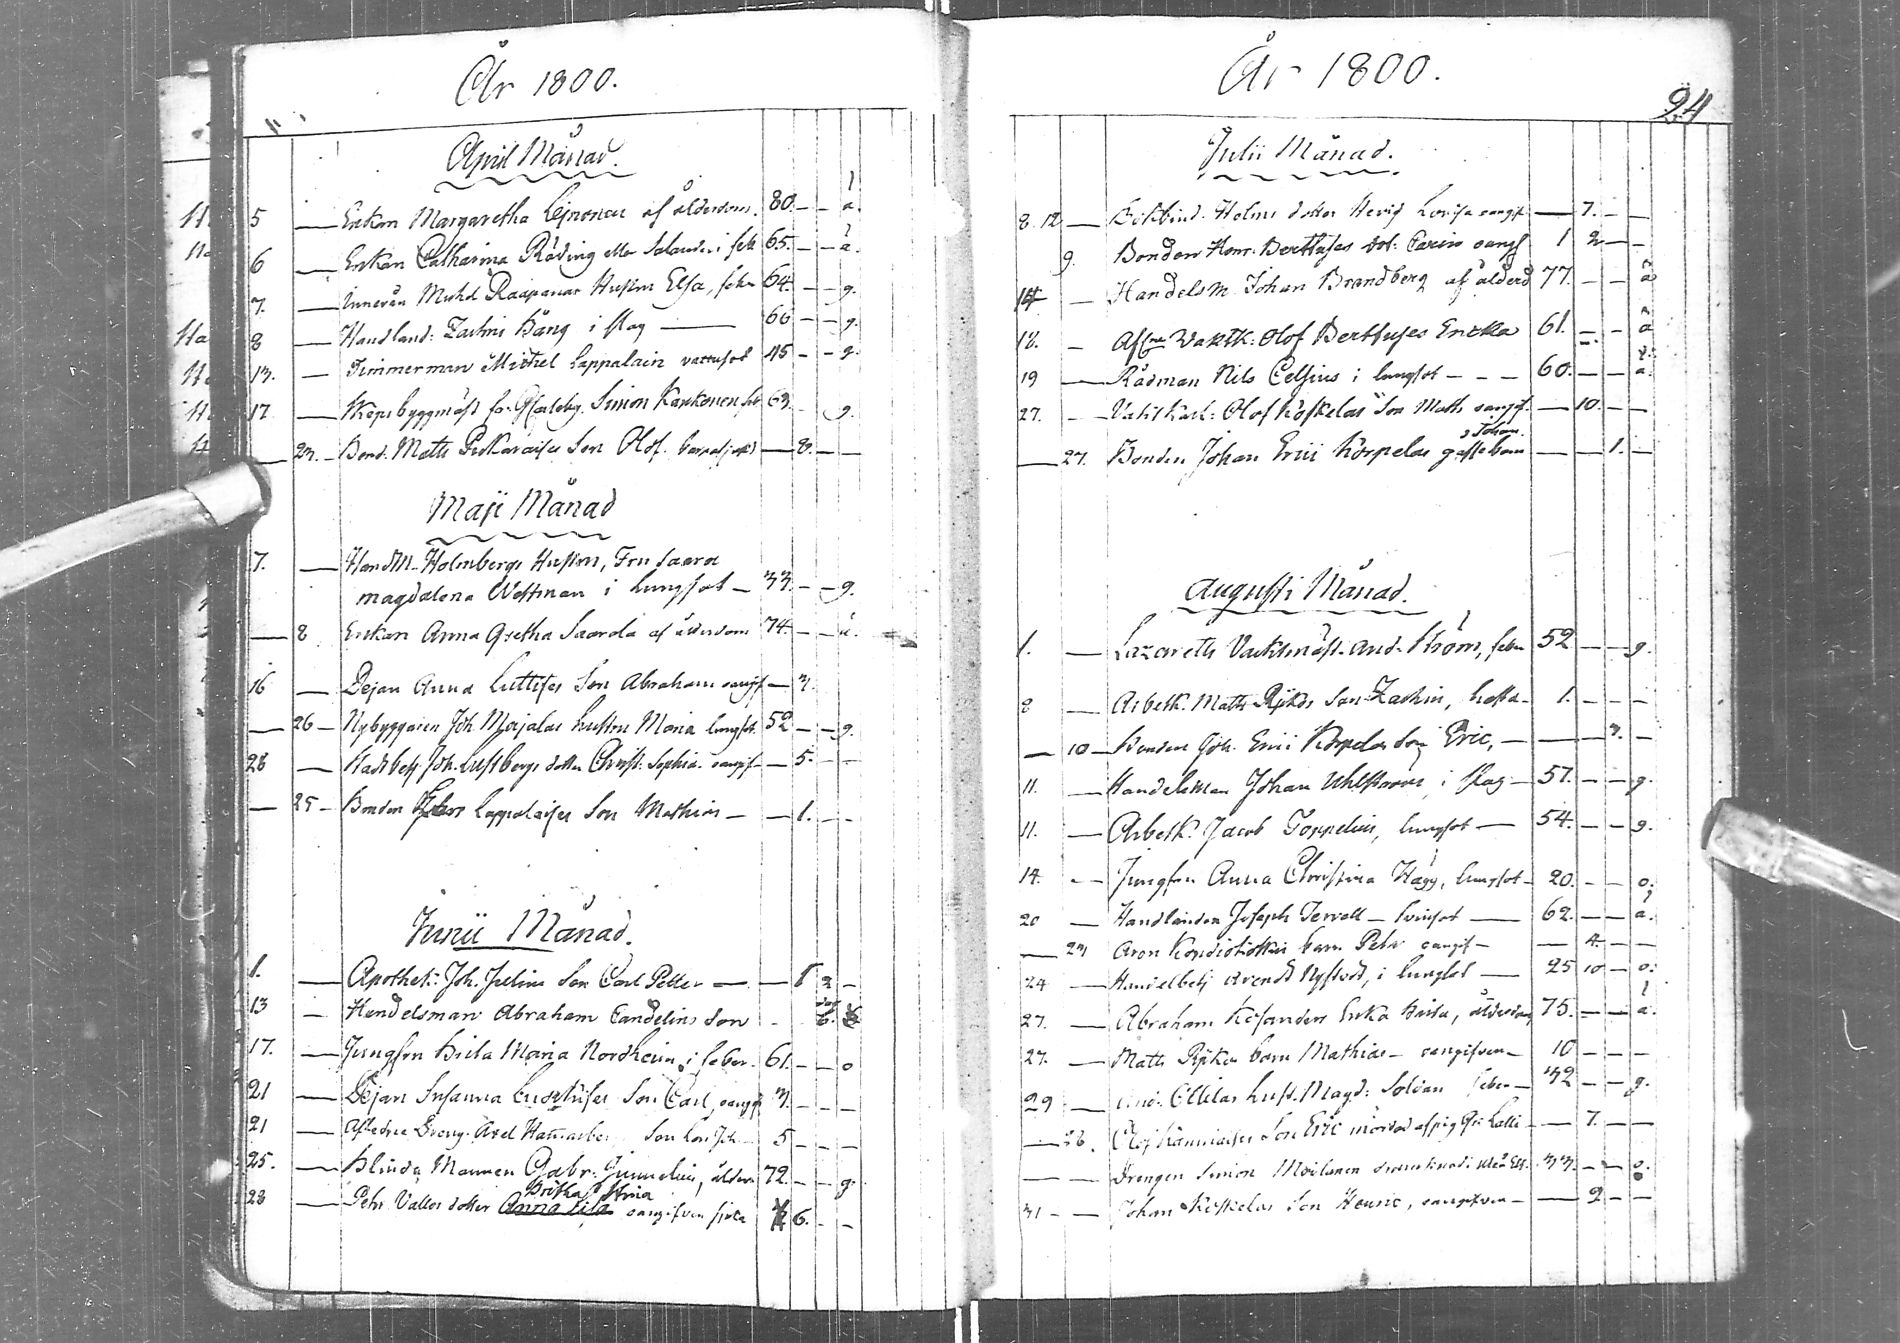 År 1800.
April Månad.
5 — Enkan Margaretha af ålderdom. 80. — — ä.
6 — Enkan Catharina Räding eller i feb 65. — — ä.
7. — Muhd Raapanas Hustru Elsa, feber 64. — — g.
8 — Handland: Zachris Häng i slag — 66 — — g.
13. — Timmerman Michel Lappalain vattusot 45 — — g.
17 — Skeps byggmäst Simon Karkonen 63. — g.
— 23. — Bond. Matts Son Olof. — 8. — —
Maji Månad
7. — HandM. Holmbergs Hustru, Fru Saara
magdalena Westman i lungsot — 33. — — g.
— 8 Enkan Anna Gretha Saarela af ålderdom 74. — — ä.
16 — Dejan Anna Luttises Son Abraham oangif — 3.
— 26 — Nybyggaren Joh. Marjalas hustru Maria lungsot. 52 — — g.
28 — Joh. Lustbergs dotter Christ: Sophia oangif — 5. — —
— 25 — Bonden Lappalaises Son Mathias — — 1. — —
Junii Månad.
1. — Apothek: Joh. Julins Son Carl Petter — — 1 2 —
13 — Handelsman Abraham Candelins Son 6.
17. — Jungfru Brita Maria Nordheim, i feber. 61. — — o
21 — Dejan Susanna Son Carl, oangif 3. — — —
21 — Afledne Dreng. Axel Son 5 — — —
25. — blinda Mannen Gabr. ålder 72. — — g.
Britha Stina
28 — Pehr Vallos dotter Anna Lisa oangifven sjuka 6. — —
År 1800.
24
Julii Månad.
8. 12 — Bokbind. Holms dotter Hevig Lovisa oangif — 7. — —
9. Bonden Henr. Berttuses dot: Carin oangif 1 2 — —
14 — Handelsm. Johan Brandberg af ålderd 77. — — ä
18. — Afl vaktk: Olof Berttuses Encka 61. — — ä
19 — Rådman Nils Celsius i lungsot — — — 60. — — ä.
27. — Vaktkarl: Olof Koskelas Son Matts oangif. — 10. — —
Johan.
— 27. Bonden Johan Erici Korpelas gossebarn — — 1. —
Augusti Månad.
1. — Lazaretts Vacktmäst. And. Ström, feber 52 — — g.
8 — Arbetk. Matts Ripkas Son Zachris, hosta — 1. — — —
— 10 — Bonden Joh. Erici Korpelas Son Eric, — — 3. —
11. — Handelsman Johan Uhlstroem i slag — 57. — — g.
11. — Arbetk. Jacob Toppelius, lungsot — 54. — — g.
14. — Jungfru Anna Christina Hägg, lungsot — 20. — — o.
20 — Handlanden Joseph Tervell — 62. — — ä.
— 23 Aron barn Pehr oangif — — 4. — —
24 — Handelbetj Arendt Nystedt, i lungsot — 25 10 — o.
27. — Abraham Kosanders Enka Brita, ålderdom 75. — — ä.
27. — Matts Ripkas barn Mathias — oangifven — 10 — — —
29 — And. Ollilas hust. Magd: Soldan feber — 32 — — g.
— 26. Olof Son Eric mördad af pig — 7. — —
— — Drengen Simon Moilanen 33. — — o.
31 — — Johan Koskelas Son Henric, oangifven — — 2 — —